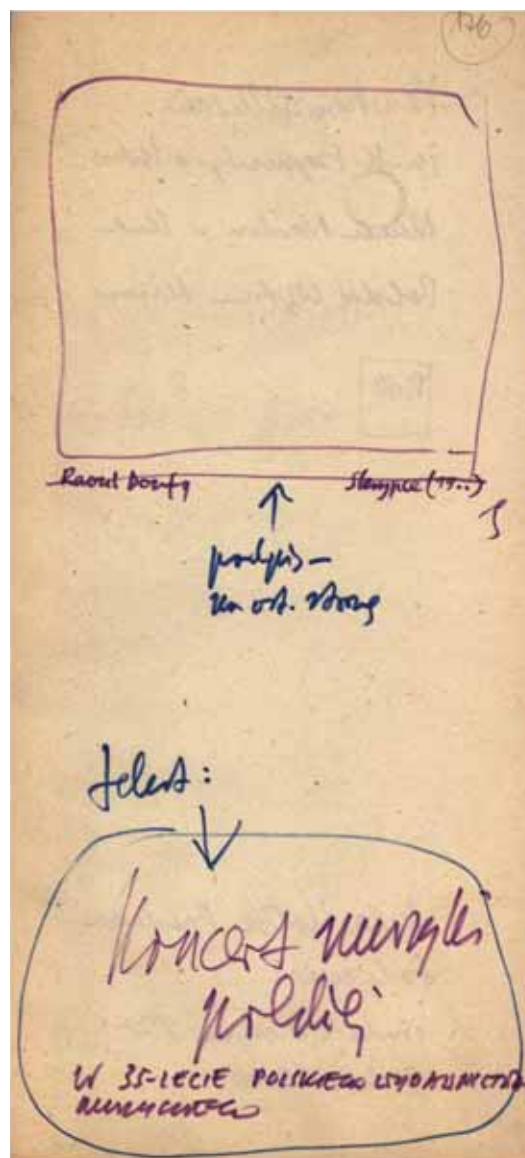 176
Raoul Doufy Skrzypce (19..)
podpis –
na ost. stronę
tekst:
Koncert muzyki
polskiej
W 35-LECIE POLSKIEGO WYDAWNICTWA
MUZYCZNEGO